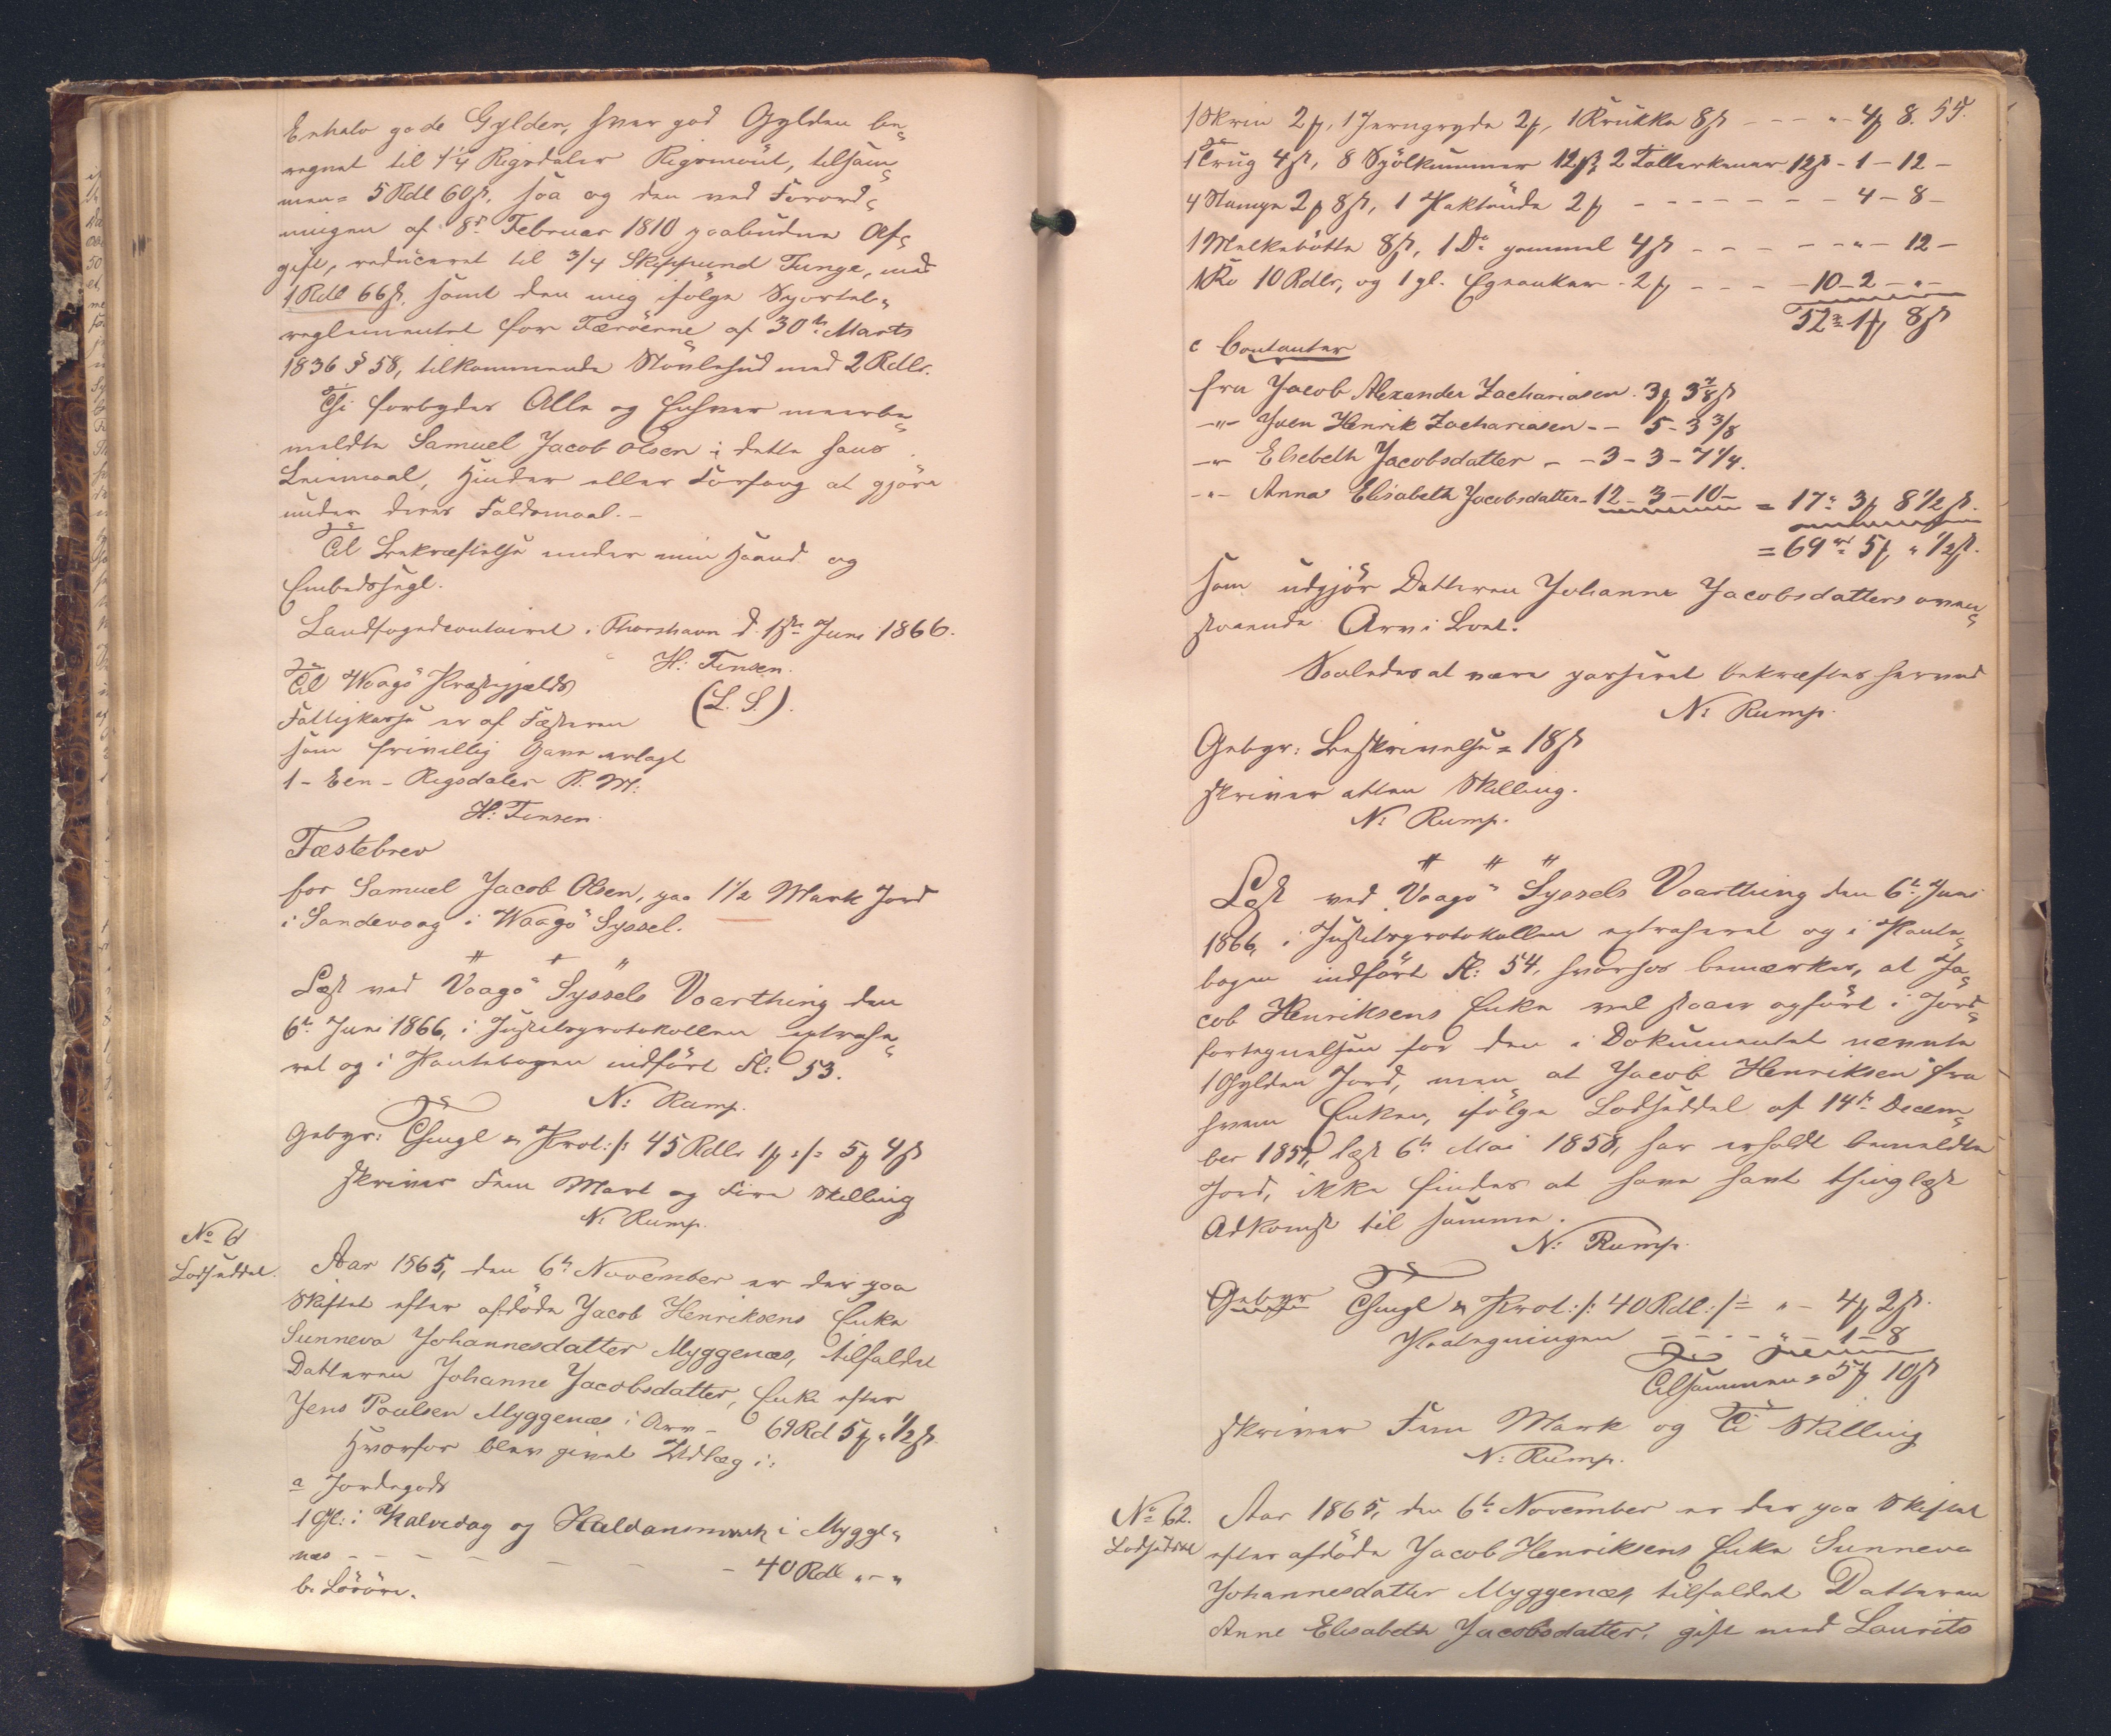 Enhalv gode Gylden, hver god Gylden be-
regnet til 4¼ Rigsdaler Rigsmönt, tilsam-
men = 5 Rdl 60 ß, saa og den ved Forord-
ningen af 8de Februar 1810 paabudne Af-
gift, reduceret til 3/4 Skippund Tunge, med
1 Rdl 66 ß. samt den mig ifölge Sportel-
reglementet for Færöerne af 30te Marts
1836 § 58, tilkommende Stövlehud med 2 Rdlr.
Thi forbydes Alle og Enhver meerbe-
meldte Samuel Jacob Olsen i dette hans
Leiemaal, Hinder eller Forfang at gjöre
under deres Faldsmaal. –
Til Bekræftelse under min Haand og
Embedssegl.
Landfogedcontoiret i Thorshavn d. 1ste Juni 1866.
H: Finsen.
(L. S.).
Til Waagö Præstegjælds
Fattigkasse er af Fæsteren
som frivillig Gave erlagt
1 – Een – Rigsdaler R. M:
H: Finsen
Fæstebrev
for Samuel Jacob Olsen, paa 1½ Mark Jord
i Sandevaag i Waagö Syssel.
Læst ved Vaagö Syssels Vaarthing den
6te Juni 1866, i Justitsprotokollen extrahe-
ret og i Pantebogen indfört Fl: 53.
N: Rump.
Gebyr: Thingl & Prot: /: 45 Rdlr 1 ₰ :/= 5 ₰ 4 ß
skriver Fem Mark og Fire Skilling
N: Rump.
No 61
Lodseddel.
Aar 1865, den 6te November er der paa
Skiftet efter afdöde Jacob Henriksens Enke
Sunneva Johannesdatter Myggenæs, tilfaldet
Datteren Johanne Jacobsdatter, Enke efter
Jens Poulsen Myggenæs i Arv – 69 Rd 5 ₰ " ½ ß
Hvorfor blev givet Udlæg i:
a Jordegods
1 Gl: i Kalvedag og Haldansmark i Mygge-
næs – – – – – – 40 Rdl " – "
b. Lösöre.
1 Skrin 2 ₰, 1 Jerngryde 2 ₰, 1 Krukke 8 ß – – – " – 4 ₰ 8.
55.
1 Trug 4 ß, 8 Spölkummer 12 ß, 2 Tallerkener 12 ß – 1 – 12 –
4 Stampe 2 ₰ 8 ß, 1 Saktönde 2 ₰ – – – – – – 4 – 8 –
1 Melkebötte 8 ß, 1 Do gammel 4 ß – – – – " – 12 –
1 Ko 10 Rdlr, og 1 gl. Egeanker – 2 ₰ – – – – 10 – 2 – " –
52 rd 1 ₰ 8 ß
c Contanter
fra Jacob Alexander Zachariasen. 3 ₰ 3 7/8 ß
– " – Joen Henrik Zachariasen – – 5 – 3 3/8
– " – Elsebeth Jacobsdatter – – 3 – 3 – 7 ¼.
– " – Anna Elisabeth Jacobsdatter – 12 – 3 – 10 – = 17 " 3 ₰ 8 ½ ß.
= 69 rd 5 ₰ " ½ ß.
som udgjör Datteren Johanne Jacobsdatters oven-
staaende Arv i Boet.
Saaledes at være passeret bekræftes herved
N: Rump.
Gebyr: Beskrivelse = 18 ß
skriver atten Skilling.
N: Rump.
Læst ved Vaagö Syssels Vaarthing den 6te Juni
1866, i Justitsprotokollen extraheret og i Pante-
bogen indfört Fl: 54, hvorhos bemærkes, at Ja-
cob Henriksens Enke vel staaer opfört i Jord-
fortegnelsen for den i Dokumentet nævnte
1 Gylden Jord, men at Jacob Henriksen fra
hvem Enken, ifölge Lodseddel af 14de Decem-
ber 1857, læst 6te Mai 1858, har erholdt bemeldte
Jord, ikke findes at have havt thinglæst
Adkomst til samme.
N: Rump.
Gebyr Thingl & Prot: /: 40 Rdl :/= " – 4 ₰ 2 ß.
Paategningen – – – – " – 1 – 8
Tilsammen = 5 ₰ 10 ß
skriver Fem Mark og Ti Skilling
N: Rump.
No 62.
Lodseddel
Aar 1865, den 6te November er der paa Skiftet
efter afdöde Jacob Henriksens Enke Sunneva
Johannesdatter Myggenæs, tilfaldet Datteren
Anne Elisabeth Jacobsdatter, gift med Laurits